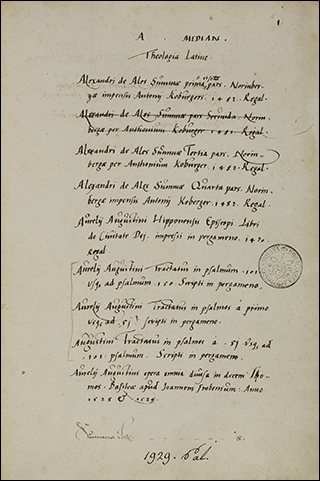 1
A MEDIAN.
Theologia Latine
Alexandri de Ales Summæ prima pars. Norimber-
gæ impensis Antonij Koburger. 1482. Regal.
Alexandri de Ales Summæ pars Secunda Norim-
bergæ per Anthonium Koburger 1481. Regal.
Alexandri de Ales Summæ Tertia pars Norim-
bergæ per Anthonium Koburger. 1482. Regal.
Alexandri de Ales Summæ Quarta pars. Norim-
bergæ impensis Antonij Koberger. 1482. Regal.
Aurelij Augustini Hipponensis Episcopi Libri
de Ciuitate Dei. impressi in pergameno. 1470
Regal
Aurelij Augustini Tractatus in psalmum. 101
usq, ad psalmum. 150. Scripti in pergameno.
Aurelij Augustini Tractatus in psalmos à primo
usq, ad. 51. scripti in pergameno.
Augustini Tractatus in psalmos à. 51 usq, ad.
101. psalmum. Scripti in pergameno.
Aurelij Augustini opera omnia diuisa in decem Tho-
mos. Basileæ apud Joannem Frobenium. Anno
1528 & 1529.
1929. Pal.